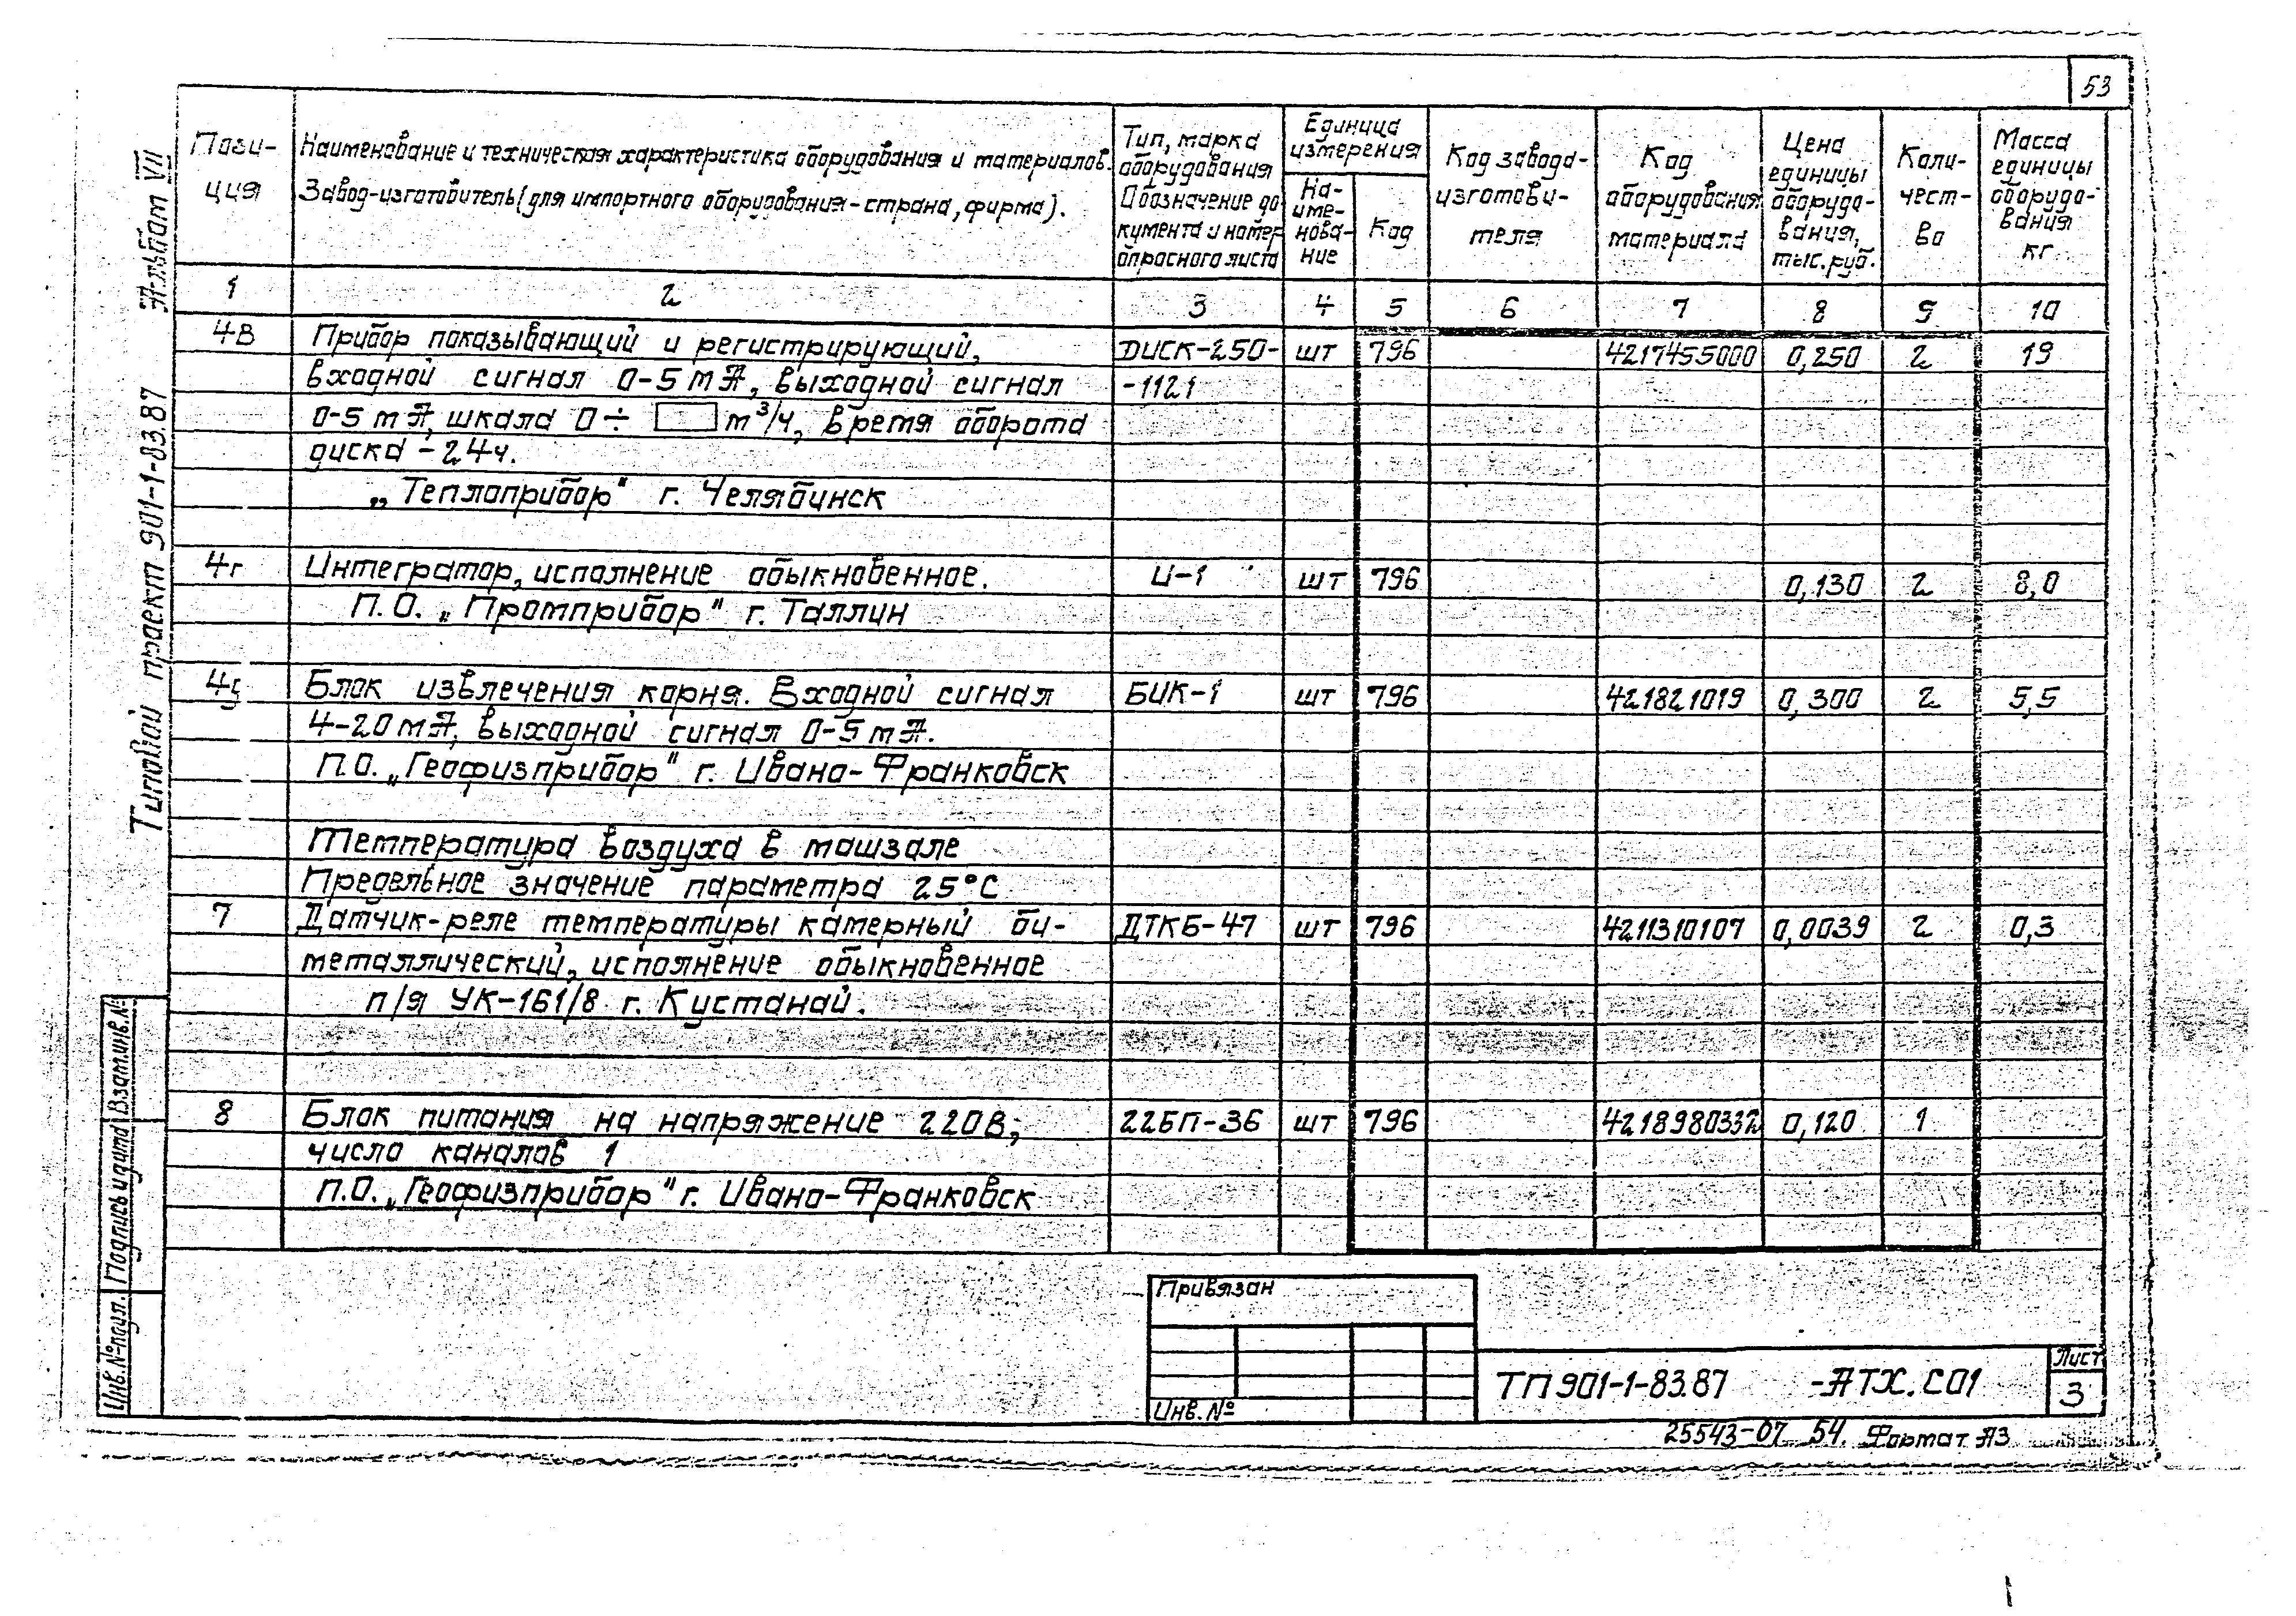 53
Пози-
ция
Наименование и техническая характеристика оборудования и материалов.
Завод-изготовитель (для импортного оборудования-страна, фирма).
Тип, марка
оборудования
Обозначение до
кумента и номер
опросного листа
Единица
измерения
На-
име-
нова-
ние
Код
Код завода-
изготови-
теля
Код
оборудования
материала
Цена
единицы
оборудо-
вания,
тыс. руб.
Коли-
чест-
во
Масса
единицы
оборудо-
вания
кг
1 2 3 4 5 6 7 8 9 10
4в Прибор показывающий и регистрирующий, ДИСК-250- шт 796 4217455000 0,250 2 19
входной сигнал 0-5 мА, выходной сигнал -1121
0-5 мА, шкала 0÷ м³/ч, время оборота
диска - 24ч.
„Теплоприбор" г. Челябинск
4г Интегратор, исполнение обыкновенное. И-1 шт 796 0,130 2 8,0
П.О. „Промприбор" г. Таллин
4д Блок извлечения корня. Входной сигнал БИК-1 шт 796 421821019 0,300 2 5,5
4-20 мА, выходной сигнал 0-5 мА.
П.О. „Геофизприбор" г. Ивано-Франковск
Температура воздуха в машзале
Предельное значение параметра 25°С
7 Датчик-реле температуры камерный би- ДТКБ-47 шт 796 4211310107 0,0039 2 0,3
металлический, исполнение обыкновенное
п/я УК-161/8 г. Кустанай.
8 Блок питания на напряжение 220В; 22БП-36 шт 796 4218980332 0,120 1
число каналов 1
П.О. „Геофизприбор" г. Ивано-Франковск
Типовой проект 901-1-83.87 Альбом VII
Взам.инв.№
Подпись и дата
Инв.№ подл.
Привязан
Инв. №
ТП 901-1-83.87 -АТХ.СО1
Лист
3
25543-07 54. Формат А3